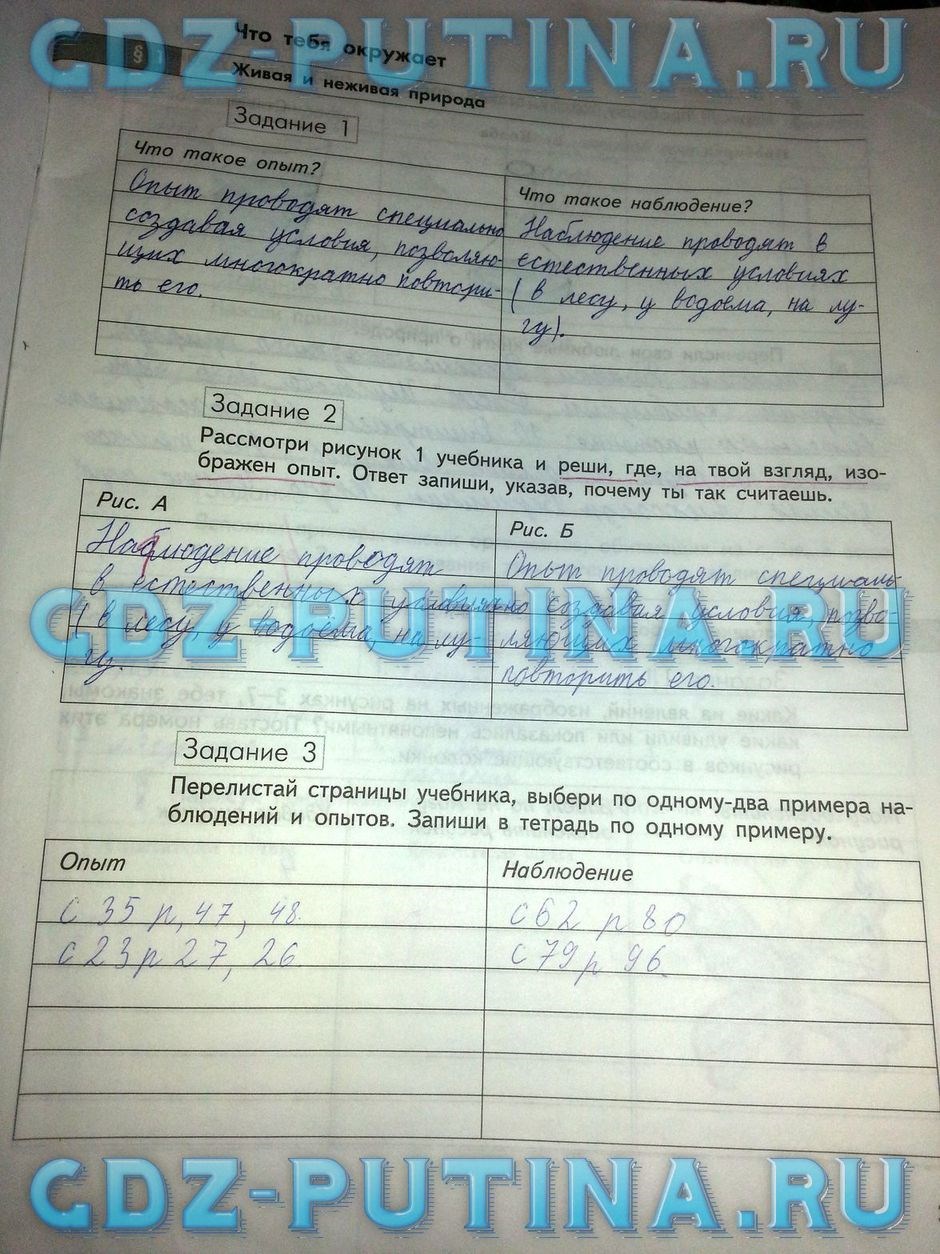 GDZ-PUTINA.RU
Что тебя окружает
§ 1
Живая и неживая природа
Задание 1
Что такое опыт?
Опыт проводят специально
создавая условия, позволяю-
щих многократно повтори-
ть его.
Что такое наблюдение?
Наблюдение проводят в
естественных условиях
( в лесу, у водоёма, на лу-
гу).
Задание 2
Рассмотри рисунок 1 учебника и реши, где, на твой взгляд, изо-
бражен опыт. Ответ запиши, указав, почему ты так считаешь.
Рис. А
Наблюдение проводят
в естественных условиях
( в лесу, у водоёма, на лу-
гу.
Рис. Б
Опыт проводят специаль-
но создавая условия, позво-
ляющих многократно
повторить его.
GDZ-PUTINA.RU
Задание 3
Перелистай страницы учебника, выбери по одному-два примера на-
блюдений и опытов. Запиши в тетрадь по одному примеру.
Опыт
с 35 р, 47, 48.
с 23 р 27, 26
Наблюдение
с 62 р 80
с 79 р 96
GDZ-PUTINA.RU